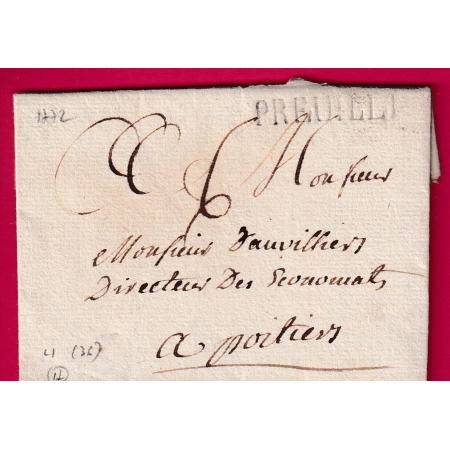 1772
PREUILLI
6
Monsieur
Monsieur Dauvilliers
Directeur Des Economats
a poitiers
4 (36)
17